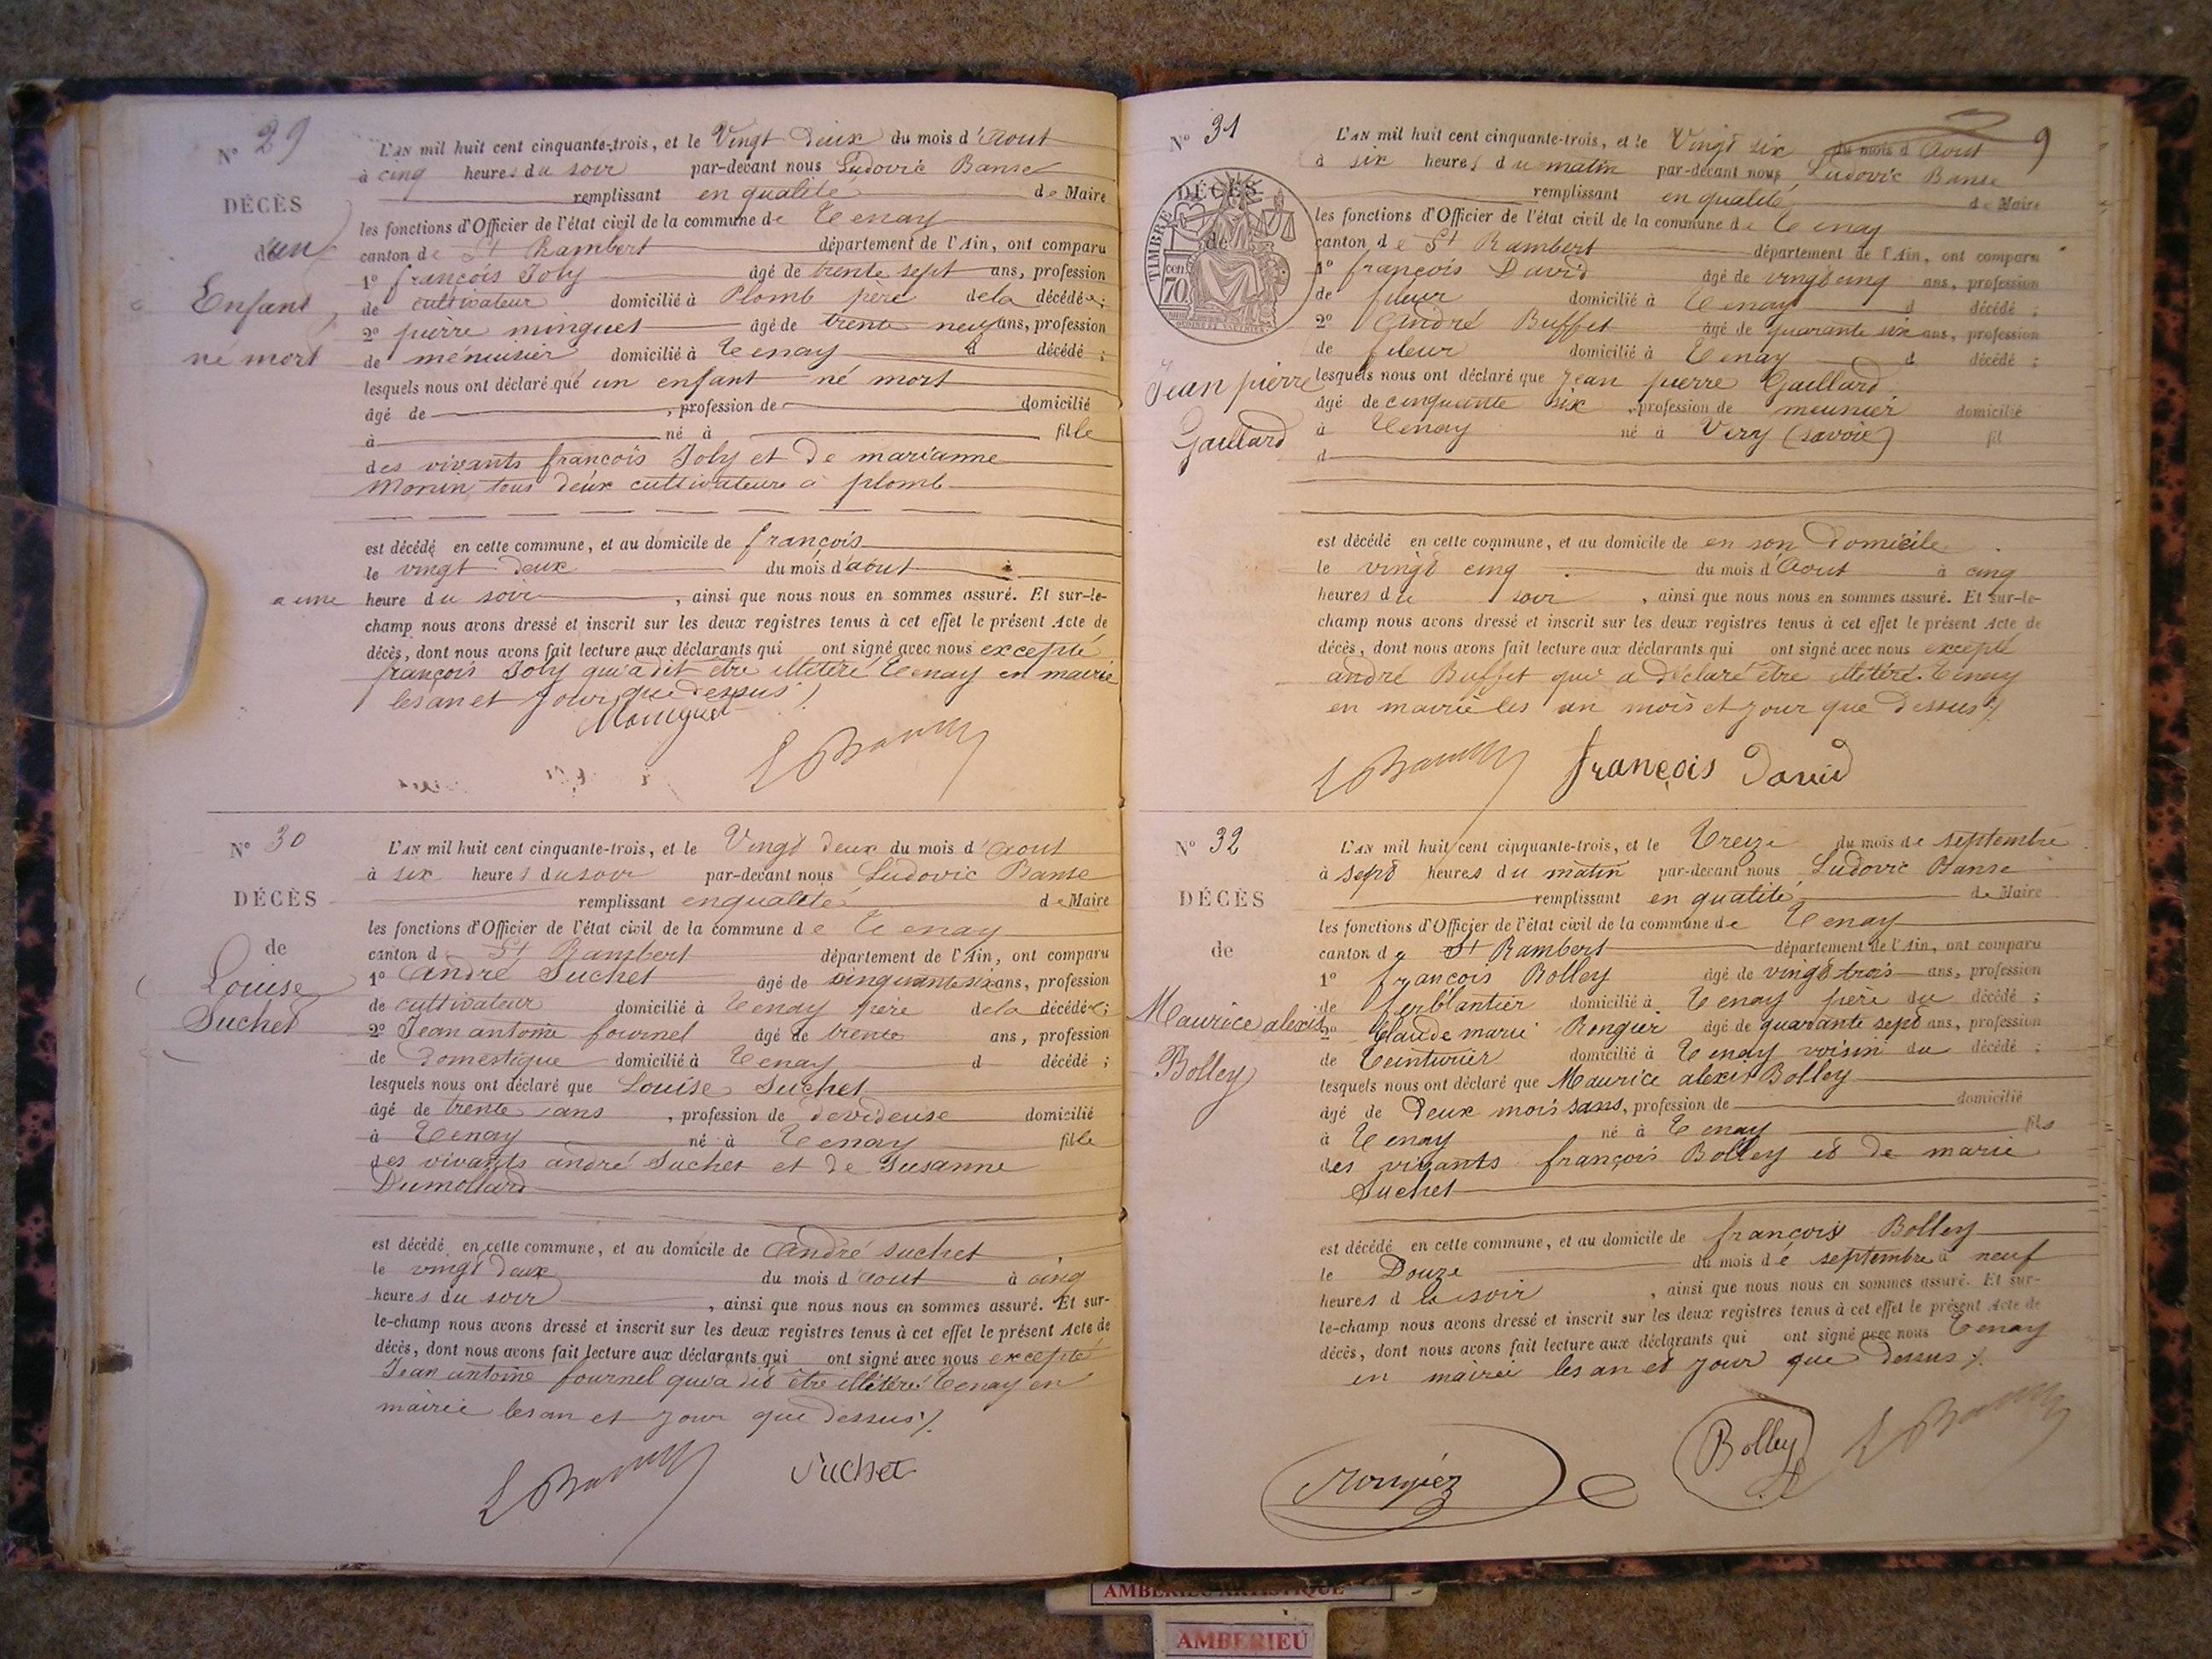 N° 29
DÉCÈS
d'un
Enfant
né mort
L'AN mil huit cent cinquante-trois, et le Vingt deux du mois d'Aout
à cinq heures du soir par-devant nous Ludovic Banse
remplissant en qualité de Maire
les fonctions d'Officier de l'état civil de la commune de Tenay
canton de St Rambert département de l'Ain, ont comparu
1° françois Joly âgé de trente sept ans, profession
de cultivateur domicilié à Plomb père de la décédée;
2° pierre minguet âgé de trente neuf ans, profession
de ménuisier domicilié à Tenay d décédé;
lesquels nous ont déclaré que un enfant né mort
âgé de , profession de domicilié
à né à fille
des vivants françois Joly et de marianne
Monin, tous deux cultivateurs à plomb
est décédé en cette commune, et au domicile de françois
le vingt deux du mois d'aout
a une heure du soir , ainsi que nous nous en sommes assuré. Et sur-le-
champ nous avons dressé et inscrit sur les deux registres tenus à cet effet le présent Acte de
décès, dont nous avons fait lecture aux déclarants qui ont signé avec nous excepté
françois Joly qu'a dit être illetéré Tenay en mairie
les an et jour que dessus ./.
N° 30
DÉCÈS
de
Louise
Suchet
L'AN mil huit cent cinquante-trois, et le Vingt deux du mois d'Aout
à six heures du soir par-devant nous Ludovic Banse
remplissant en qualité de Maire
les fonctions d'Officier de l'état civil de la commune de Tenay
canton d St Rambert département de l'Ain, ont comparu
1° André Suchet âgé de cinquante six ans, profession
de cultivateur domicilié à Tenay père de la décédée;
2° Jean antoine fournel âgé de trente ans, profession
de domestique domicilié à Tenay d décédé;
lesquels nous ont déclaré que Louise Suchet
âgé de trente ans , profession de devideuse domicilié
à Tenay né à Tenay fille
des vivants andré Suchet et de Susanne
Dumollard
est décédé en cette commune, et au domicile de André Suchet
le vingt deux du mois d'aout à cinq
heures du soir , ainsi que nous nous en sommes assuré. Et sur-
le-champ nous avons dressé et inscrit sur les deux registres tenus à cet effet le présent Acte de
décès, dont nous avons fait lecture aux déclarants qui ont signé avec nous excepté
Jean antoine fournel qu'a dit être illétéré Tenay en
mairie les an et jour que dessus ./.
Suchet
N° 31
9
TIMBRE
70 cen
DÉCÈS
de
Jean pierre
Gaillard
L'AN mil huit cent cinquante-trois, et le Vingt six du mois d Aout
à six heures du matin par-devant nous Ludovic Banse
remplissant en qualité de Maire
les fonctions d'Officier de l'état civil de la commune de Tenay
canton de St Rambert département de l'Ain, ont comparu
1° françois David âgé de vingt cinq ans, profession
de fileur domicilié à Tenay d décédé;
2° André Buffet âgé de quarante six ans, profession
de fileur domicilié à Tenay d décédé;
lesquels nous ont déclaré que Jean pierre Gaillard
âgé de cinquante six , profession de meunier domicilié
à Tenay né à Very (savoie) fil
d
est décédé en cette commune, et au domicile de en son domicile
le vingt cinq du mois d'Aout à cinq
heures du soir , ainsi que nous nous en sommes assuré. Et sur-le-
champ nous avons dressé et inscrit sur les deux registres tenus à cet effet le présent Acte de
décès, dont nous avons fait lecture aux déclarants qui ont signé avec nous excepté
andré Buffet qui a déclaré être illétéré. Tenay
en mairie les an mois et jour que dessus ./.
françois David
N° 32
DÉCÈS
de
Maurice alexis
Bolley
L'AN mil huit cent cinquante-trois, et le Treize du mois de septembre
à sept heures du matin par-devant nous Ludovic Banse
remplissant en qualité de Maire
les fonctions d'Officier de l'état civil de la commune de Tenay
canton de St Rambert département de l'Ain, ont comparu
1° françois Bolley âgé de vingt trois ans, profession
de ferblantier domicilié à Tenay père du décédé;
2° Claude marie Rongier âgé de quarante sept ans, profession
de Teinturier domicilié à Tenay voisin du décédé;
lesquels nous ont déclaré que Maurice alexis Bolley
âgé de Deux mois sans, profession de domicilié
à Tenay né à Tenay fils
des vivants françois Bolley et de marie
Suchet
est décédé en cette commune, et au domicile de françois Bolley
le Douze du mois de septembre à neuf
heures d la soir , ainsi que nous nous en sommes assuré. Et sur-
le-champ nous avons dressé et inscrit sur les deux registres tenus à cet effet le présent Acte de
décès, dont nous avons fait lecture aux déclarants qui ont signé avec nous Tenay
en mairie les an et jour que dessus ./.
Rongier
Bolley
AMBERIEU ARTISTIQUE
AMBERIEU